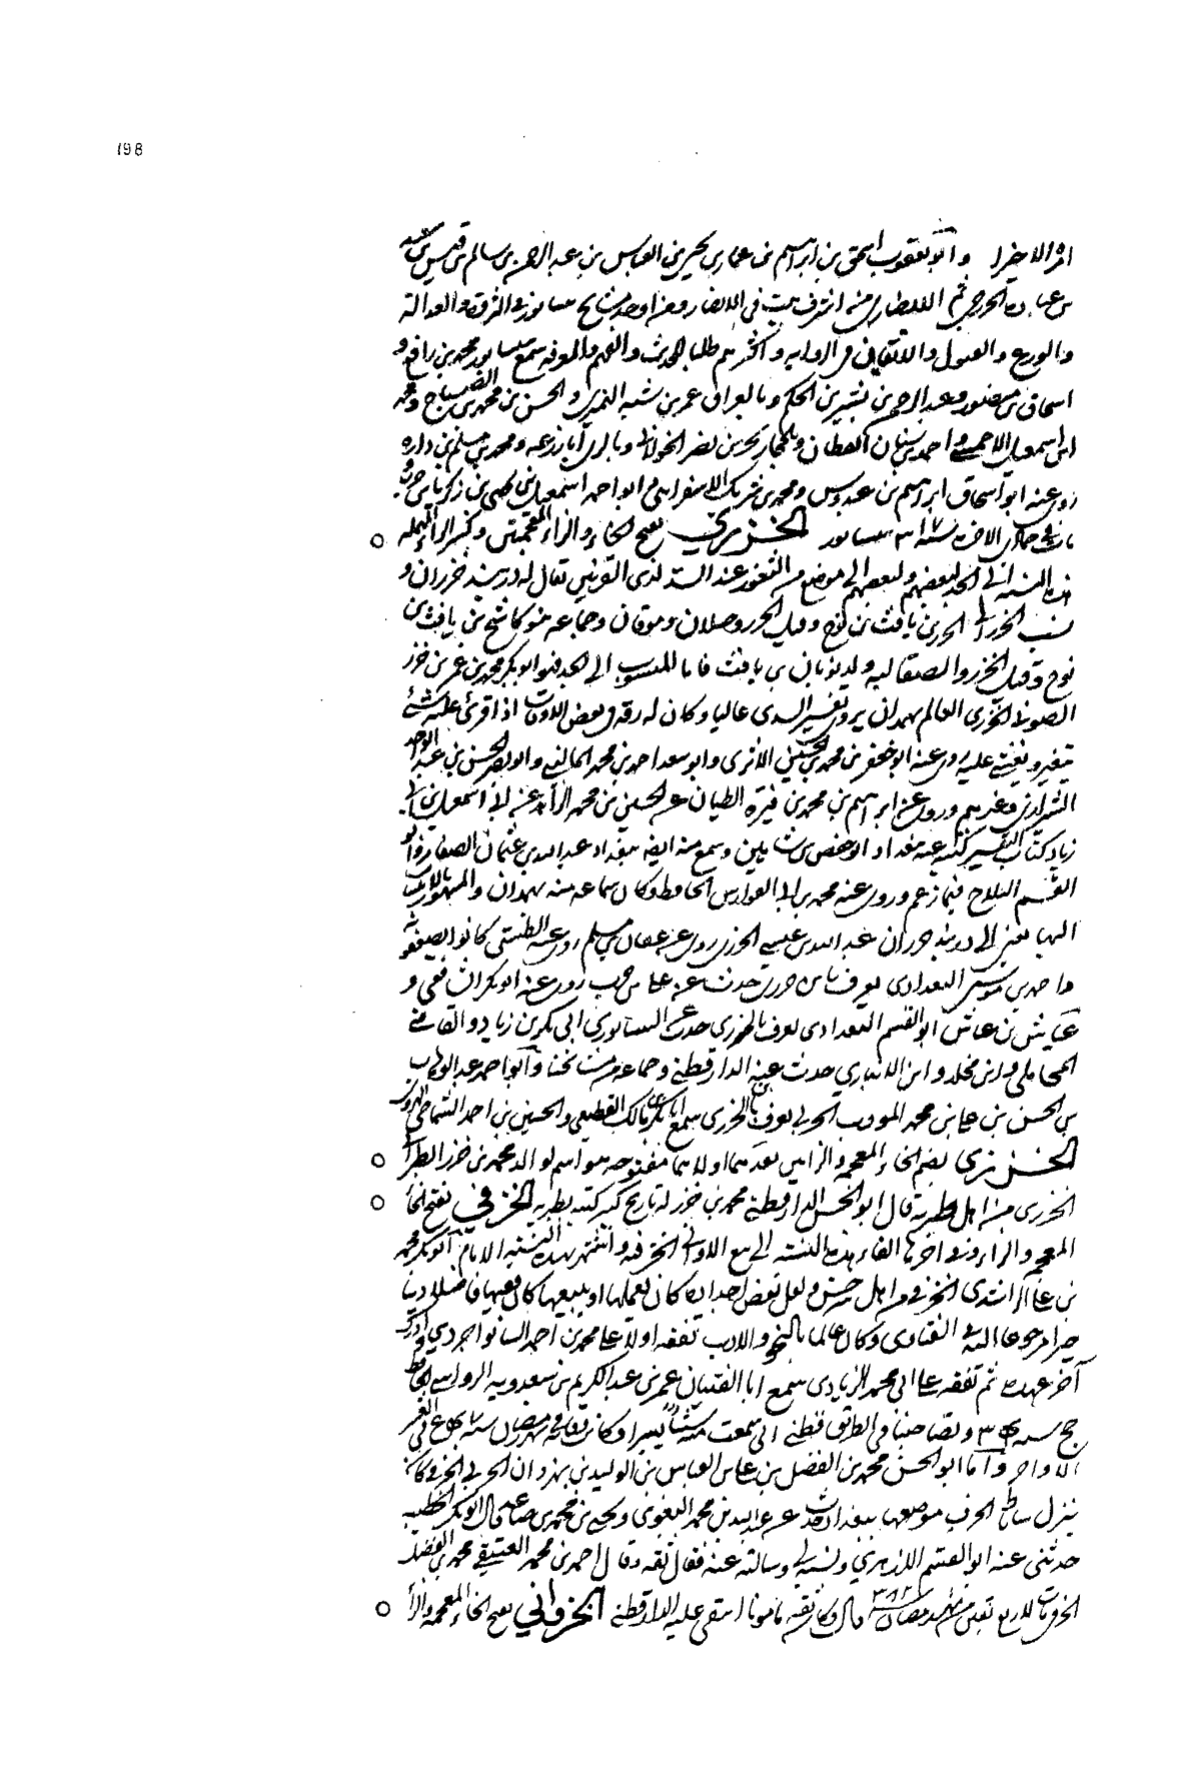 198
امر الاخرا وابو يعقوب اسحق بن ابراهيم بن عمار بن يحيى بن العباس بن عبد الرحمن بن سالم بن قيس بن سعد
بن عبادة الخزرجى ثم الانصارى من اشرف بيت فى الانصار ومن اوحد مشايخ نيسابور فى الثروة والعدالة
والورع والقبول والاتقان فى الرواية و اكثرهم طلبا للحديث والفهم والمعرفة سمع بنيسابور محمد بن رافع و
اسحاق بن منصور وعبد الرحمن بن بشر بن الحكم وبالعراق عمر بن شبه النميرى والحسن بن محمد بن الصباح ومحمد
ابن اسمعيل الاحمسى واحمد بن سنان القطان وبالحجاز بحر بن نصر الخولانى وبالرى ابا زرعه ومحمد بن مسلم بن داره
روى عنه ابو اسحاق ابراهيم بن عبدوس ومحمد بن شريك الاسفراينى وابو احمد اسمعيل بن يحيى بن زكريا
فى جمادى الاخرة سنة ٣١٧ بنيسابور الخزرى بفتح الخاء والزاء المعجمتين وكسر الراء المهملة
هذه النسبة الى الجد لبعضهم ولبعضهم الى موضع من الثغور عند السد لذى القرنين يقال له دربند خزران و
نسب الخزر الى الخزر بن يافث بن نوح وقيل الخزر وصلان وموقان وجماعه هنو كاشح بن يافث بن
نوح وقيل الخزر والصقالبه ولد ثوبان بن يافث فاما المنسوب الى الجد فهو ابو بكر محمد بن عمر بن خزر
الصوفى الخزرى العالم بهمدان يروى تفسير السدى عاليا وكان له رقة فى بعض الاوقات اذا قرئ عليه شئ
يتغير ويغشى عليه روى عنه ابو جعفر بن محمد بن الحسين الاثرى وابو سعد احمد بن محمد المالينى وابو نصر الحسن بن عبد الواحد
الشيرازى وغيرهم وروى عن ابراهيم بن محمد بن فيرة الطيان عن الحسين بن محمد الزاهد عن اسمعيل بن ابى
زياد كتاب التفسير كتبه عنه ببغداد ابو حفص بن شاهين وسمع منه ايضا ببغداد عبد الله بن عثمان الصفار وابو
القسم الثلاج فيما زعم وروى عنه محمد بن ابى الفوارس الحافظ وكان سماعه منه بهمدان والمشهور بالانتساب
الى دربند خزران عبد الله بن عيسى الخزرى روى عن عفان بن مسلم روى عنه الطستى كانوا يضعفونه
واحمد بن موسى البغدادى يعرف بابن خزرى حدث عنه على بن حرب روى عنه ابو بكر الشافعى و
عياش بن ابو القسم البغدادى يعرف بالخزرى حدث عن النيسابورى ابى بكر بن زياد والقاضى
المحاملى وابن مخلد وابن الانبارى حدث عنه الدارقطنى وجماعة من شيخنا وابو احمد عبد الوهاب
بن الحسن بن على بن محمد المودب الحربى يعرف بابن الخزرى سمع ابا بكر بن مالك القطيعى والحسين بن احمد الشماخى الهروى
الخزرى بضم الخاء المعجمة والزاى بعدهما اولاهما مفتوحه هو اسم لوالد محمد بن خزر الطبرانى
الخزرى من اهل طبرية قال ابو الحسن الدارقطنى محمد بن خزر له تاريخ كبير كتبه بطبرية الخزفى بفتح الخاء
المعجمة والزاء وفى اخرها الفاء هذه النسبة الى بيع الاوانى الخزفيه واشتهر بهذه النسبة الامام ابو بكر محمد
بن على الراشدى الخزفى من اهل سرخس ولعل بعض اجداده كان يعملها او يبيعها كان فقيها فاضلا دينا
خيرا مرجوعا اليه فى الفتاوى وكان عالما بالنحو والادب تفقه اولا على محمد بن احمد السانواجردى وادرك
آخر عهده ثم تفقه على ابى محمد الزيادى سمع ابا الفتيان عمر بن عبد الكريم بن سعدويه الرواسى الحافظ
حج سنة وتصاحبنا فى الطريق فظنى انى سمعت منه شيئا يسيرا وكانت وفاته فى رمضان سنة فى العشر
الاواخر واما ابو الحسن محمد بن الفضل بن على بن العباس بن الوليد بن بهزدان الحربى الخزفى كان
ينزل ساباط الخزف موضعها ببغداد حدث عن عبد الله بن محمد البغوى ويحيى بن محمد بن صاعد قال ابو بكر الخطيب
حدثنى عنه ابو القسم الازهرى ونسبه لى وسالته عنه فقال ثقة وقال احمد بن محمد العتيقى محمد بن الفضل
الخزفى مات لاربع بقين من شهر رمضان قال وكان ثقة مامونا انتقى عليه الدارقطنى الخزوانى بفتح الخاء المعجمة والزاء